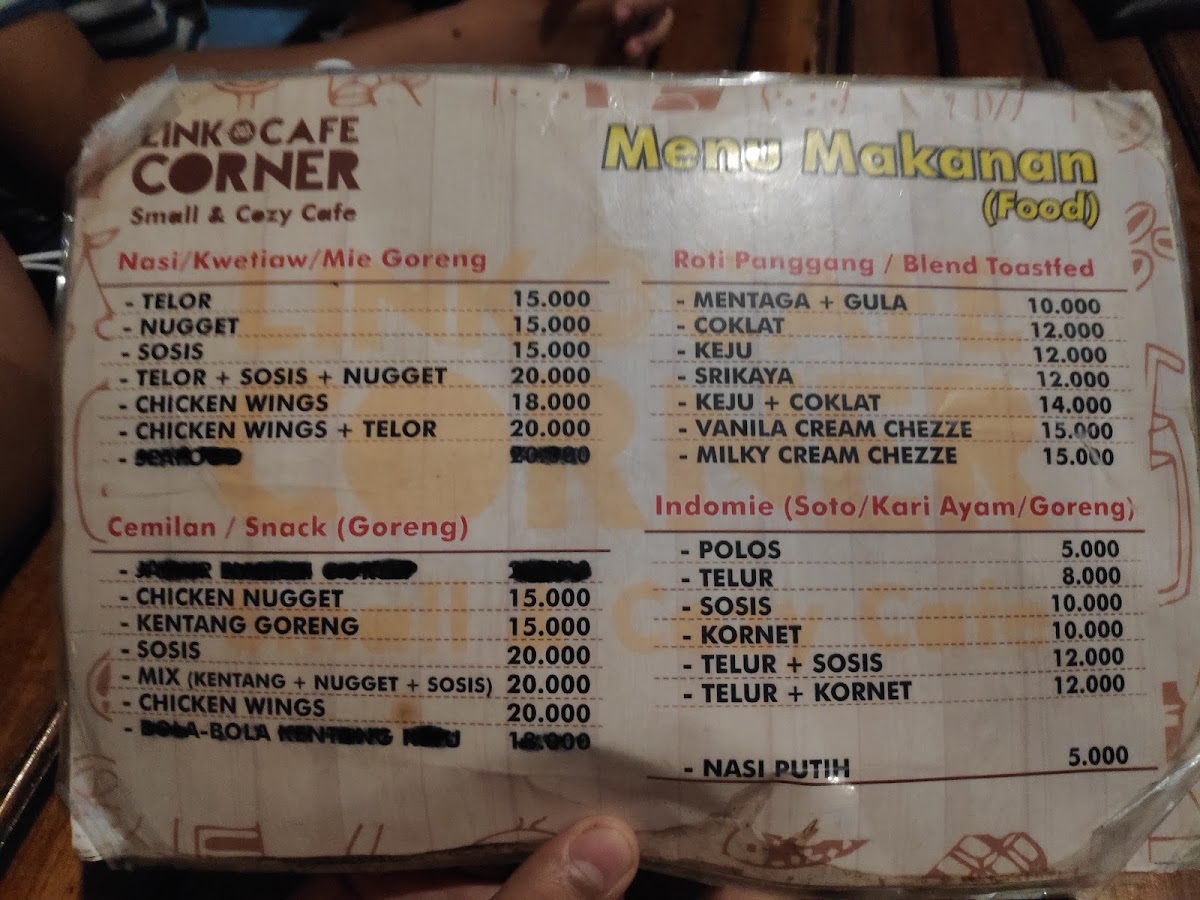 LINK CAFE
CORNER
Small & Cozy Cafe
Menu Makanan
(Food)
Nasi/Kwetiaw/Mie Goreng
- TELOR 15.000
- NUGGET 15.000
- SOSIS 15.000
- TELOR + SOSIS + NUGGET 20.000
- CHICKEN WINGS 18.000
- CHICKEN WINGS + TELOR 20.000
Cemilan / Snack (Goreng)
- CHICKEN NUGGET 15.000
- KENTANG GORENG 15.000
- SOSIS 20.000
- MIX (KENTANG + NUGGET + SOSIS) 20.000
- CHICKEN WINGS 20.000
- BOLA-BOLA 18.000
Roti Panggang / Blend Toastfed
- MENTAGA + GULA 10.000
- COKLAT 12.000
- KEJU 12.000
- SRIKAYA 12.000
- KEJU + COKLAT 14.000
- VANILA CREAM CHEZZE 15.000
- MILKY CREAM CHEZZE 15.000
Indomie (Soto/Kari Ayam/Goreng)
- POLOS 5.000
- TELUR 8.000
- SOSIS 10.000
- KORNET 10.000
- TELUR + SOSIS 12.000
- TELUR + KORNET 12.000
- NASI PUTIH 5.000